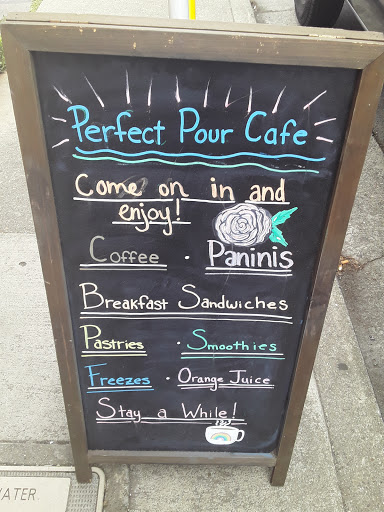 Perfect Pour Cafe
Come on in and
enjoy!
Coffee · Paninis
Breakfast Sandwiches
Pastries · Smoothies
Freezes · Orange Juice
Stay a While!
WATER